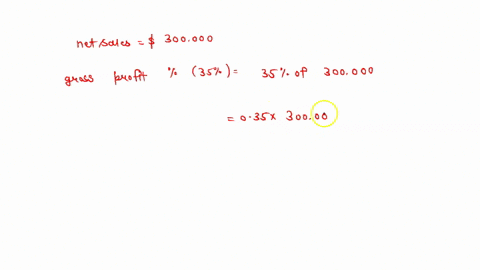 net sales = $ 300.000
gross profit % (35%) = 35% of 300.000
= 0.35 x 300.00